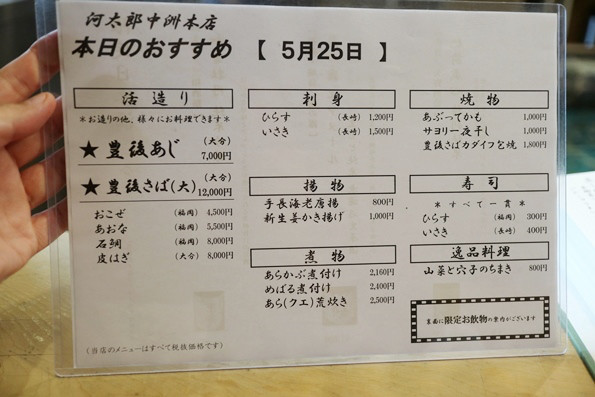 河太郎中洲本店
本日のおすすめ 【 5月25日 】
活造り
＊お造りの他、様々にお料理できます＊
★ 豊後あじ (大分)
7,000円
★ 豊後さば(大) (大分)
12,000円
おこぜ (福岡) 4,500円
あおな (福岡) 5,500円
石鯛 (福岡) 8,000円
皮はぎ (大分) 8,000円
(当店のメニューはすべて税抜価格です)
刺身
ひらす (長崎) 1,200円
いさき (長崎) 1,500円
揚物
手長海老唐揚 800円
新生姜かき揚げ 1,000円
煮物
あらかぶ煮付け 2,160円
めばる煮付け 2,400円
あら(クエ)荒炊き 2,500円
焼物
あぶってかも 1,000円
サヨリ一夜干し 1,000円
豊後さばカダイフ包焼 1,800円
寿司
＊すべて一貫＊
ひらす (福岡) 300円
いさき (長崎) 400円
逸品料理
山菜と穴子のちまき 800円
裏面に限定お飲物の案内がございます